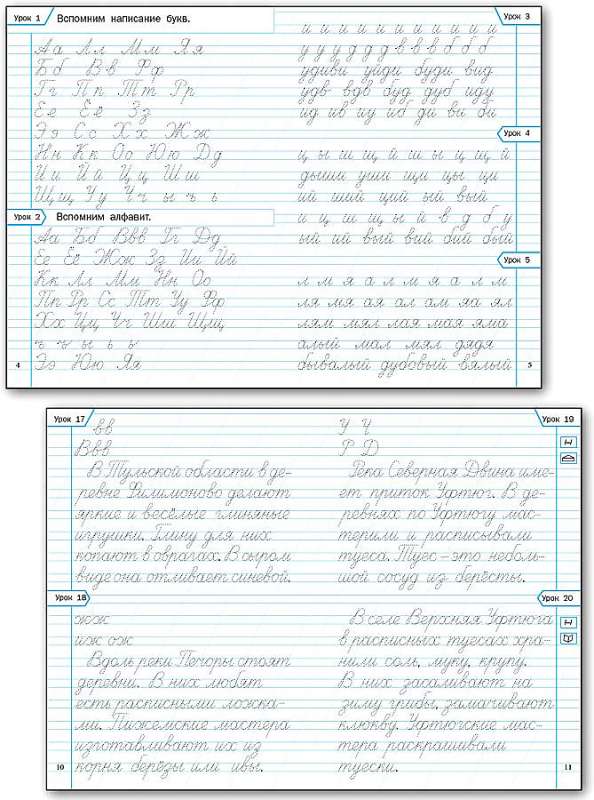 Урок 1
Вспомним написание букв.
Аа Лл Мм Яя
Бб Вв Рф
Гг Пп Тт Рр
Ее Ёё Зз
Ээ Сс Хх Жж
Нн Кк Оо Юю Дд
Ии Йй Цц Шш
Щщ Уу Чч ы ъ ь
Урок 2
Вспомним алфавит.
Аа Бб Ввв Гг Дд
Ее Ёё Жж Зз Ии Йй
Кк Лл Мм Нн Оо
Пп Рр Сс Тт Уу Фф
Хх Цц Чч Шш Щщ
Ээ Юю Яя
4
Урок 3
и и и и и и и и и и и
у у у д д д в в в б б б
удиви уйди буди вид
удв вдв буд дуб иду
ид ив иу иб ди ви би
Урок 4
ц ы ш щ й ш ы ц щ й
дыши уши щи цы ци
ий ший щий ый вый
и ц ш щ ы й в д б у
ый ий вый вий бий бый
Урок 5
л м я а л м я а л м
ля мя ая ал ам яа ял
лям мял лая мая яма
алый мал мял дядя
бывалый дубовый вялый
5
Урок 17
вв
Ввв
В Тульской области в де-
ревне Филимоново делают
яркие и весёлые глиняные
игрушки. Глину для них
копают в оврагах. В сыром
виде она отливает синевой.
Урок 18
жж
иж ож
Вдоль реки Печоры стоят
деревни. В них любят
есть расписными ложка-
ми. Пижемские мастера
изготавливают их из
корня берёзы или ивы.
10
Урок 19
У Ч
Р Д
Река Северная Двина име-
ет приток Уфтюг. В де-
ревнях по Уфтюгу мас-
терили и расписывали
туеса. Туес – это неболь-
шой сосуд из берёсты.
Урок 20
В селе Верхняя Уфтюга
в расписных туесах хра-
нили соль, муку, крупу.
В них засаливают на
зиму грибы, замачивают
клюкву. Уфтюгские мас-
тера раскрашивали
туески.
11